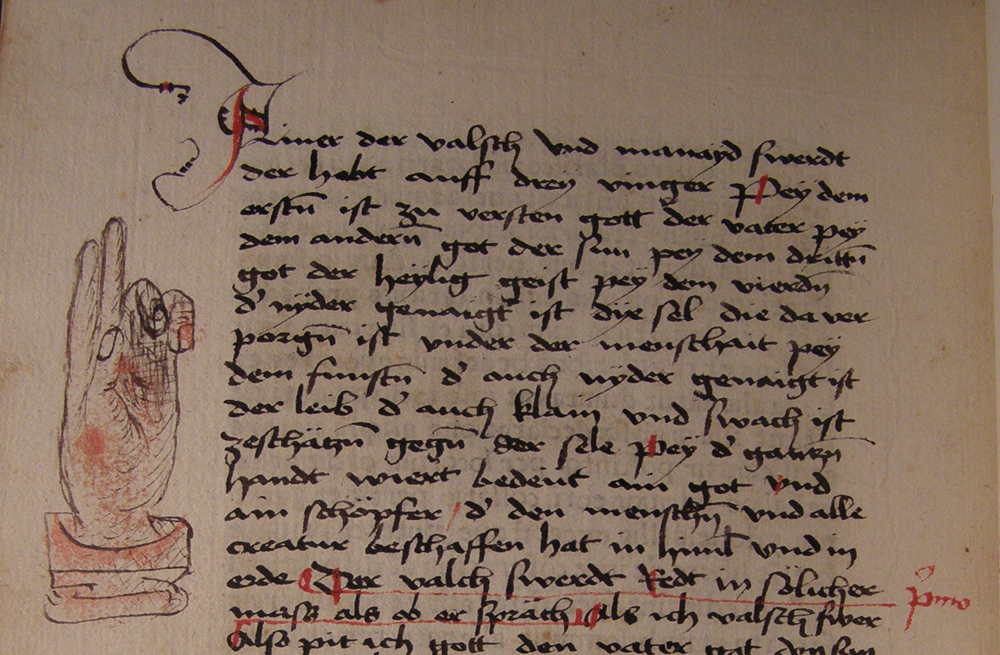 Ainer der valsch vnd manayd swerdt
der hebt auff drey vinger Pey dem
erstn̄ ist zu versten gott der vater pey
dem andern̄ got der sun pey dem drittn̄
got der heylig geist pey dem vierdn̄
d' nyder genaigt ist dye sel die da ver
porgn̄ ist vnder der menschait pey
dem funftn̄ d' auch nyder genaigt ist
der leib d' auch klain vnd swach ist
zeschätzn̄ gegn̄ der sele Pey d' gantzn̄
handt wiert bedeut ain got vnd
ain schöpfer d' den menschn̄ vnd alle
creatur beschaffen hat in himl̄ vnd in
erde Wer valsch swerdt Redt in sölicher
mass als ob er spräch Als ich valsch swer
p̄mo
Also pit ich gott den vater got den sun